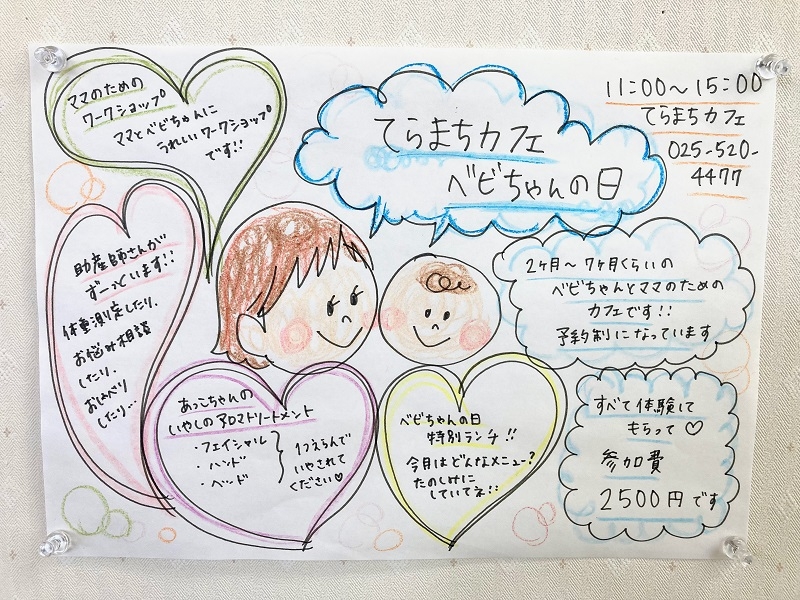 てらまちカフェ
ベビちゃんの日
11:00～15:00
てらまちカフェ
025-520-
4477
ママのための
ワークショップ
ママとベビちゃんに
うれしいワークショップ
です!!
助産師さんが
ずーっといます!!
体重測定したり、
お悩み相談
したり、
おしゃべり
したり…
2ヶ月～7ヶ月くらいの
ベビちゃんとママのための
カフェです!!
予約制になっています
あっこちゃんの
いやしのアロマトリートメント
・フェイシャル
・ハンド
・ヘッド
1つえらんで
いやされて
ください♡
ベビちゃんの日
特別ランチ!!
今月はどんなメニュー?
たのしみに
していてネ!!
すべて体験して
もらって♡
参加費
2500円です